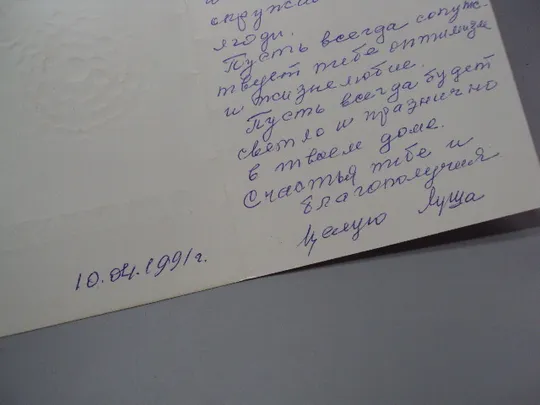 и
ягоди.
Пусть всегда сопутс-
твует тебе оптимизм
и жизнелюбие.
Пусть всегда будет
светло и празнично
в твоем доме.
Счастья тебе и
благополучия
Целую Луша
10.04.1991г.